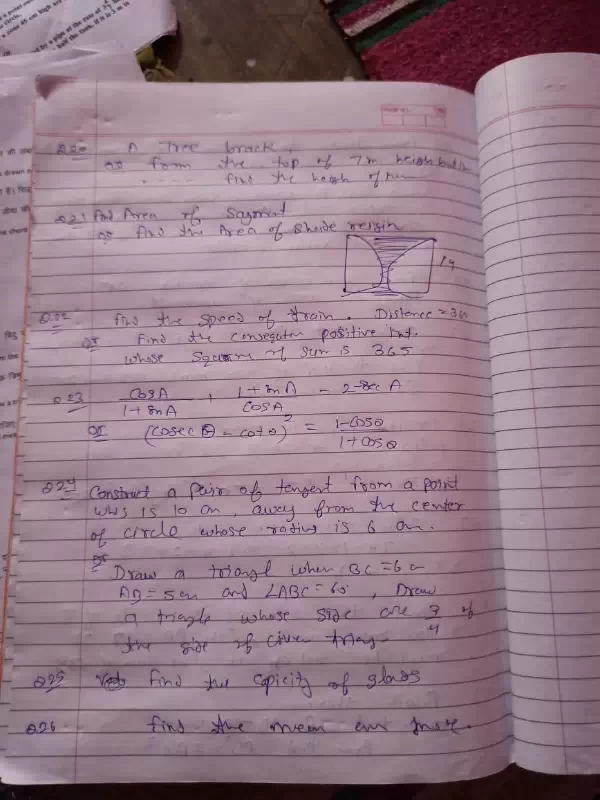 Q20 A Tree brack.
or form the top of 7m heigh
find the heigh of
Q21 Area of sagment
or find the Area of Shade reigin
14
Q22 find the speed of train. Distance = 360
or Find the consegutev positive Int.
whose Square of sum is 365
Q23 CosA/1+sinA + 1+sinA/CosA = 2secA
or (Cosec θ - cot θ)² = 1-Cosθ/1+Cosθ
Q24 Construct a pair of tengent from a point
whs is 10 cm, away from the center
of circle whose radius is 6 cm.
or
Draw a triangl when BC = 6 c
AB = 5 cm and ∠ABC = 60°, Draw
a triagle whose size are 3/4 of
the size of given triag
Q25 find the capicity of glass
Q26 find the mean